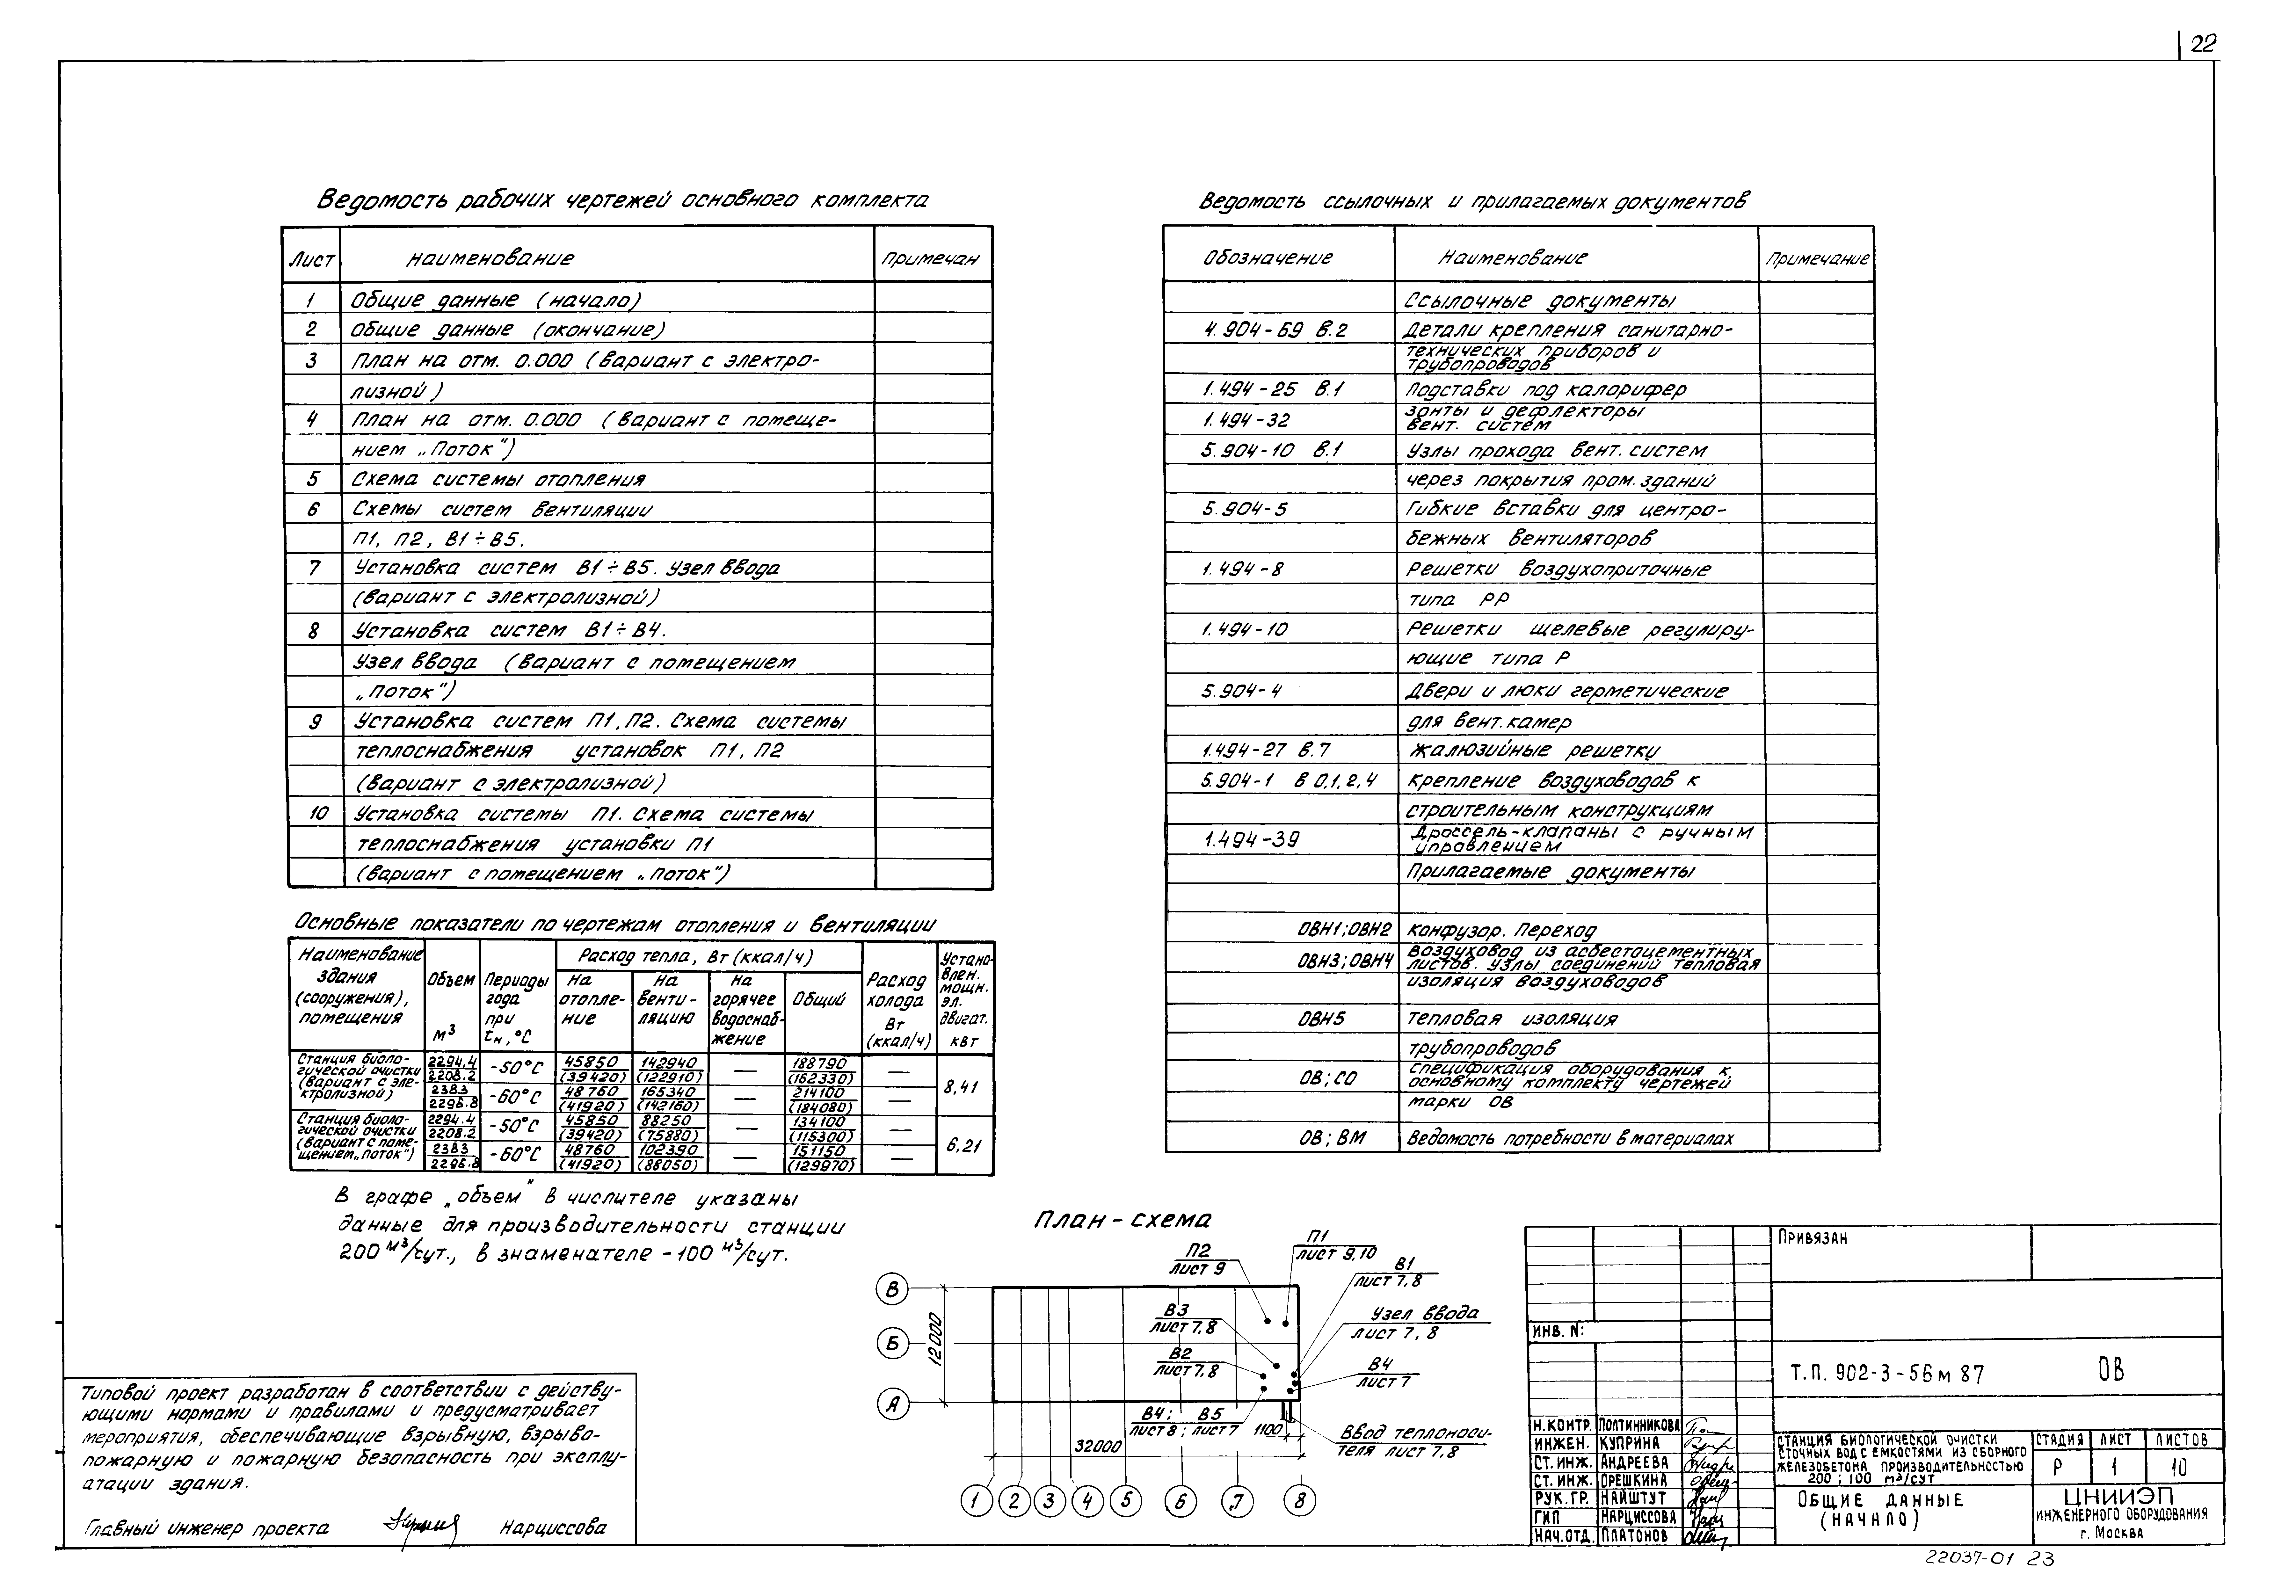 22
Ведомость рабочих чертежей основного комплекта
Лист наименование Примечан
1 Общие данные (начало)
2 Общие данные (окончание)
3 План на отм. 0.000 (вариант с электро-
лизной)
4 План на отм. 0.000 (вариант с помеще-
нием „Поток")
5 Схема системы отопления
6 Схемы систем вентиляции
П1, П2, В1÷В5.
7 Установка систем В1÷В5. Узел ввода
(вариант с электролизной)
8 Установка систем В1÷В4.
Узел ввода (вариант с помещением
„Поток")
9 Установка систем П1, П2. Схема системы
теплоснабжения установок П1, П2
(вариант с электролизной)
10 Установка системы П1. Схема системы
теплоснабжения установки П1
(вариант с помещением „Поток")
Ведомость ссылочных и прилагаемых документов
Обозначение Наименование Примечание
Ссылочные документы
4.904-69 в.2 Детали крепления санитарно-
технических приборов и
трубопроводов
1.494-25 в.1 Подставки под калорифер
1.494-32 Зонты и дефлекторы
вент. систем
5.904-10 в.1 Узлы прохода вент. систем
через покрытия пром. зданий
5.904-5 Гибкие вставки для центро-
бежных вентиляторов
1.494-8 Решетки воздухоприточные
типа РР
1.494-10 Решетки щелевые регулиру-
ющие типа Р
5.904-4 Двери и люки герметические
для вент. камер
1.494-27 в.7 Жалюзийные решетки
5.904-1 в 0,1,2,4 Крепление воздуховодов к
строительным конструкциям
1.494-39 Дроссель-клапаны с ручным
управлением
Прилагаемые документы
ОВН1; ОВН2 Конфузор. Переход
ОВН3; ОВН4 Воздуховод из асбестоцементных
листов. Узлы соединений тепловая
изоляция воздуховодов
ОВН5 Тепловая изоляция
трубопроводов
ОВ; СО Спецификация оборудования к
основному комплекту чертежей
марки ОВ
ОВ; ВМ Ведомость потребности в материалах
Основные показатели по чертежам отопления и вентиляции
Наименование здания (сооружения), помещения
Объем м³
Периоды года при tн, °С
Расход тепла, Вт (ккал/ч)
На отопле-ние
На венти-ляцию
На горячее водоснаб-жение
Общий
Расход холода Вт (ккал/ч)
Устано-влен. мощн. эл. двигат. кВт
Станция биоло-
гической очистки
(вариант с эле-
ктролизной)
2294.4 / 2208.2 -50°С 45850 / (39420) 142940 / (122910) — 188790 / (162330) — 8,41
2383 / 2296.8 -60°С 48760 / (41920) 165340 / (142160) — 214100 / (184080) —
Станция биоло-
гической очистки
(вариант с поме-
щением „Поток")
2294.4 / 2208.2 -50°С 45850 / (39420) 88250 / (75880) — 134100 / (115300) — 6,21
2383 / 2296.8 -60°С 48760 / (41920) 102390 / (88050) — 151150 / (129970) —
В графе „объем" в числителе указаны
данные для производительности станции
200 м³/сут., в знаменателе -100 м³/сут.
План-схема
П2
лист 9
П1
лист 9,10
В1
лист 7,8
Узел ввода
лист 7, 8
В3
лист 7,8
В2
лист 7,8
В4
лист 7
В4; В5
лист 8; лист 7
1100
Ввод теплоноси-
теля лист 7,8
В
Б
А
12000
32000
1 2 3 4 5 6 7 8
Типовой проект разработан в соответствии с действу-
ющими нормами и правилами и предусматривает
мероприятия, обеспечивающие взрывную, взрыво-
пожарную и пожарную безопасность при эксплу-
атации здания.
Главный инженер проекта Нарциссова
Привязан
Инв. №:
Т.П. 902-3-56м 87 ОВ
Н.контр. Полтинникова
Инжен. Куприна
Ст. инж. Андреева
Ст. инж. Орешкина
Рук. гр. Найштут
ГИП Нарциссова
Нач. отд. Платонов
Станция биологической очистки
сточных вод с емкостями из сборного
железобетона производительностью
200; 100 м³/сут
Стадия Лист Листов
Р 1 10
Общие данные
(начало)
ЦНИИЭП
инженерного оборудования
г. Москва
22037-01 23